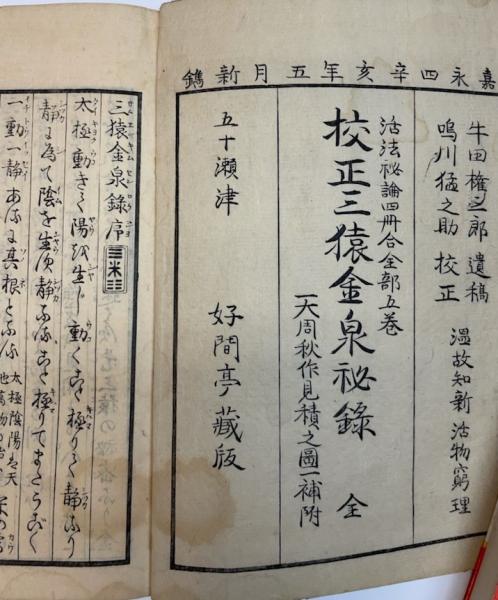 嘉永四辛亥年五月新鐫
牛田権三郎 遺稿
鳴川猛之助 校正
温故知新 活物窮理
活法祕論四冊合全部五巻
校正三猿金泉祕錄 全
一天周秋作見積之圖一補附
五十瀬津 好間亭藏版
三猿金泉錄序
太極動きて陽を生じ動くこと極りて静なり
静に為て陰を生ず静なること極りてまたうごく
一動一静あつて其根となる
太極陰陽は天